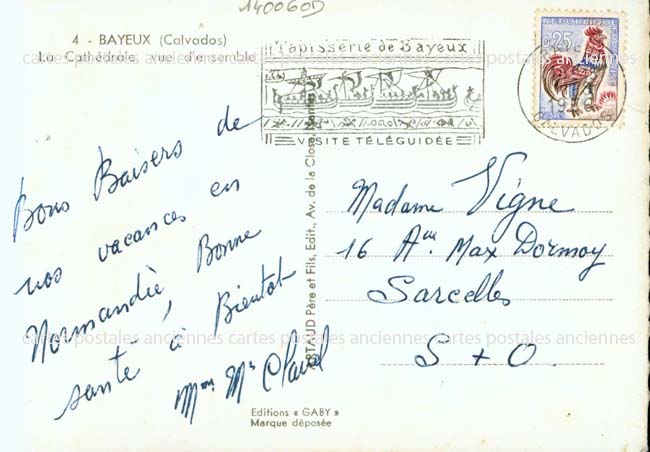 140060D
4 - BAYEUX (Calvados)
La Cathédrale, vue d'ensemble
Tapisserie de Bayeux
VISITE TÉLÉGUIDÉE
REPUBLIQUE
0,25
CALVADOS
cartes postales anciennes cartes postales anciennes cartes postales anciennes
Bons Baisers de
nos vacances en
Normandie, Bonne
santé à Bientot
Mme Mr
ARTAUD Père et Fils, Edit., Av. de la Close, Nantes
Madame Vigne
16 Aue Max Dormoy
Sarcelles
S + O.
cartes postales anciennes cartes postales anciennes cartes postales anciennes
Editions « GABY »
Marque déposée